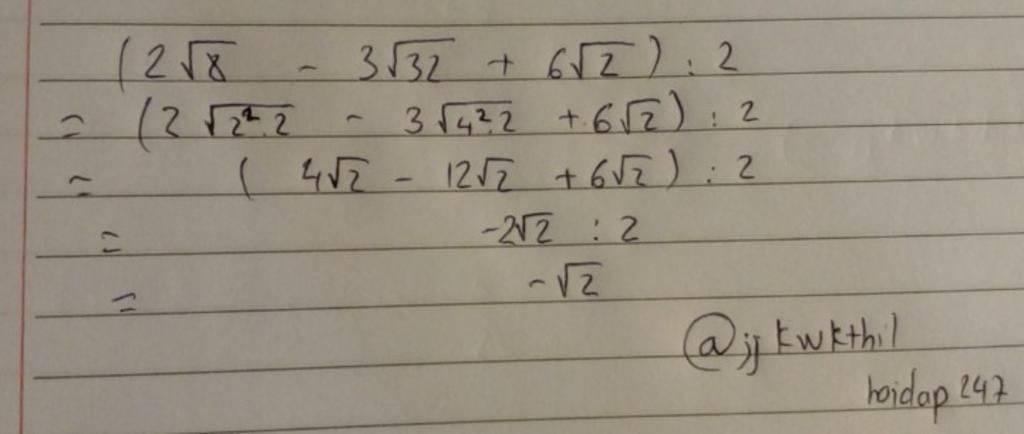 (2√8 - 3√32 + 6√2) : 2
= (2√2².2 - 3√4².2 + 6√2) : 2
= (4√2 - 12√2 + 6√2) : 2
= -2√2 : 2
= -√2
@jjkwkthil
hoidap247